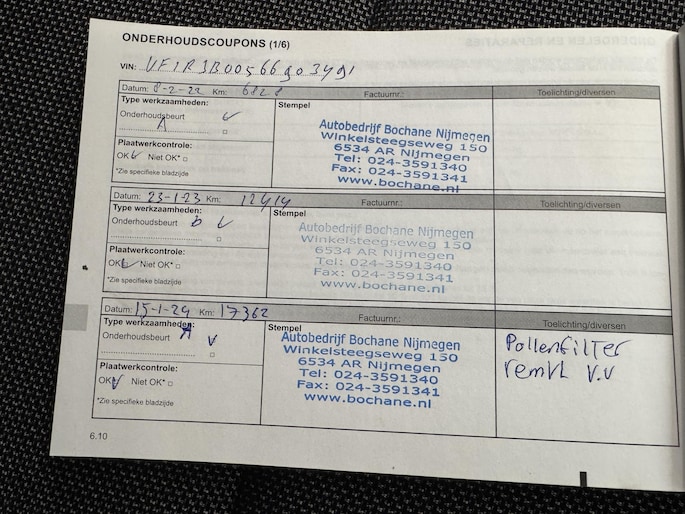 ONDERHOUDSCOUPONS (1/6)
VIN: VF1RJB00566903491
Datum: 8-2-22 Km: 6828 Factuurnr.: Toelichting/diversen
Type werkzaamheden:
Onderhoudsbeurt
A
Plaatwerkcontrole:
OK Niet OK*
*Zie specifieke bladzijde
Stempel
Autobedrijf Bochane Nijmegen
Winkelsteegseweg 150
6534 AR Nijmegen
Tel: 024-3591340
Fax: 024-3591341
www.bochane.nl
Datum: 23-1-23 Km: 12414 Factuurnr.: Toelichting/diversen
Type werkzaamheden:
Onderhoudsbeurt b
Plaatwerkcontrole:
OK Niet OK*
*Zie specifieke bladzijde
Stempel
Autobedrijf Bochane Nijmegen
Winkelsteegseweg 150
6534 AR Nijmegen
Tel: 024-3591340
Fax: 024-3591341
www.bochane.nl
Datum: 15-1-24 Km: 17362 Factuurnr.: Toelichting/diversen
Type werkzaamheden:
Onderhoudsbeurt A
Plaatwerkcontrole:
OK Niet OK*
*Zie specifieke bladzijde
Stempel
Autobedrijf Bochane Nijmegen
Winkelsteegseweg 150
6534 AR Nijmegen
Tel: 024-3591340
Fax: 024-3591341
www.bochane.nl
Pollenfilter
remvl v.v
6.10